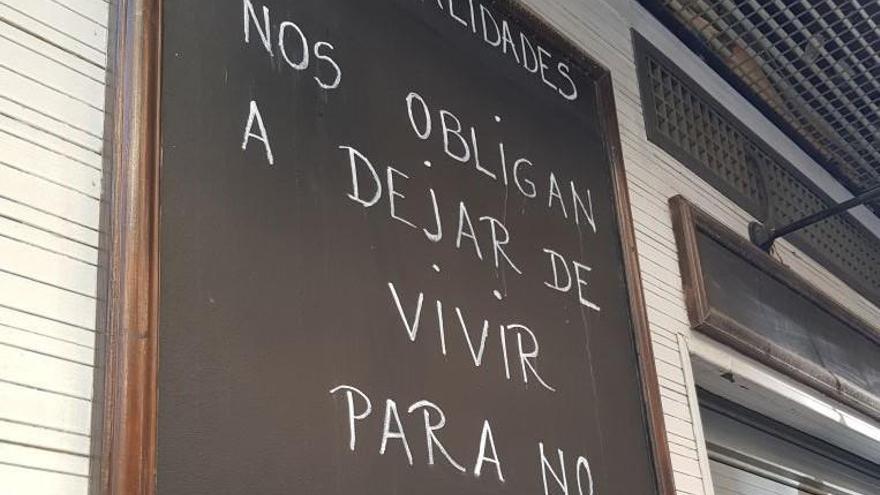 ALIDADES
NOS OBLiGAN
A DEjAR DE
ViViR
PARA NO